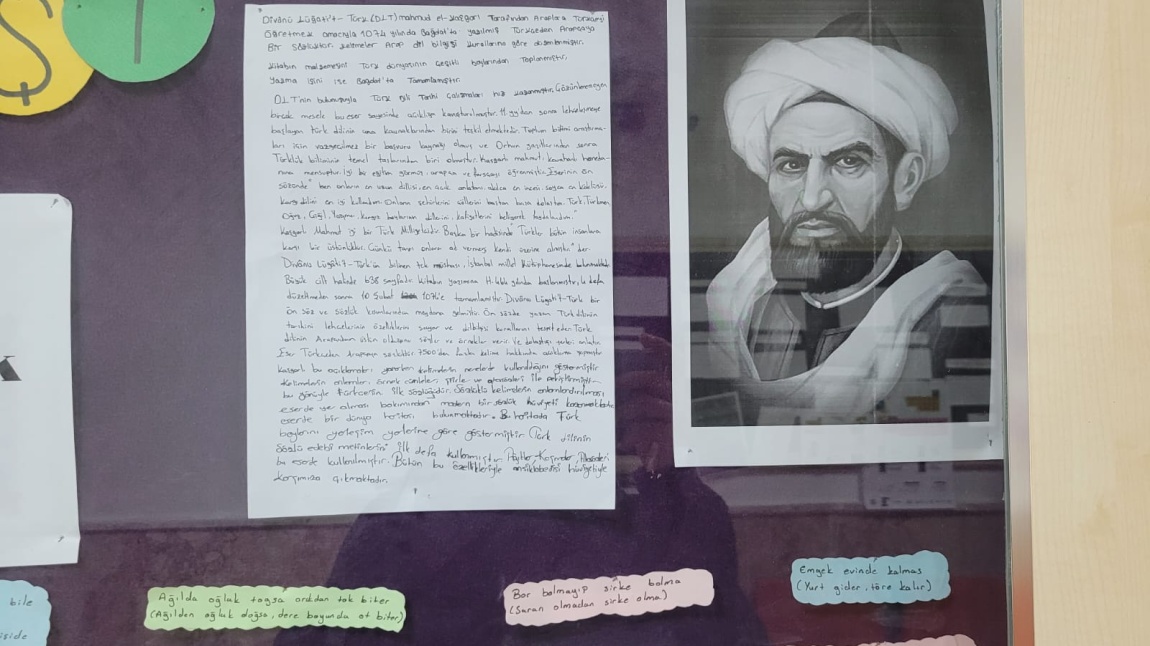 Ş
İ
Divânü Lûgati't-Türk (DLT) mahmud el-kaşgari Tarafından Araplara Türkçeyi
öğretmek amacıyla 1074 yılında Bağdat'ta yazılmış Türkçeden Arapçaya
Bir sözlüktür. kelimeler Arap dil bilgisi kurallarına göre düzenlenmiştir.
kitabın malzemesini Türk dünyasının çeşitli boylarından Toplanmıştır.
Yazma işini ise Bağdat'ta Tamamlamıştır.
DLT'nin bulunuşuyla Türk dili Tarihi Çalışmaları hız kazanmıştır.
birçok mesele bu eser sayesinde açıklığa kavuşturulmuştur. 11. yy'dan sonra
başlayan Türk dilinin ana kaynaklarından birini teşkil etmektedir. Toplum bilimi araştırma-
ları için vazgeçilmez bir başvuru kaynağı olmuş ve Orhun yazıtlarından sonra
Türklük biliminin temel taşlarından biri olmuştur. Kaşgarlı mahmut, karahanlı haneda-
nına mensuptur. İyi bir eğitim görmüş, arapça ve farsçayı öğrenmiştir. Eserinin ön
sözünde" ben onların en uzun dillisi, en açık anlatanı, akılca en incesi, soyca en köklüsü,
kargı dilini en iyi kullandım. Onların şehirlerini çöllerini baştan başa dolaştım. Türk, Türkmen
Oğuz, Çiğil, Yağma, kırgız boylarının dillerini, kafiyelerini belleyerek faydalandım."
Kaşgarlı Mahmut iyi bir Türk Milliyetçisidir. Başka bir hadisinde Türkler bütün insanlara
karşı bir üstünlüktür. Çünkü tanrı onlara ad vermeyi kendi üzerine almıştır" der.
Divânü Lûgati't-Türk'ün bilinen tek nüshası, İstanbul millet Kütüphanesinde bulunmaktadır.
Büyük cilt halinde 638 sayfadır. kitabın yazımına başlanmıştır, 4 defa
düzeltmeden sonra 10 Şubat 1074'e tamamlamıştır. Divânü Lûgati't-Türk bir
ön söz ve sözlük kısımlarından meydana gelmiştir. Ön sözde yazım Türk dilinin
tarihini lehçelerinin özelliklerini sayar ve dilbilgisi kurallarını tespit eden Türk
dilinin Arapçadan üstün olduğunu söyler ve örnekler verir. Ve dolaştığı yerleri anlatır.
Eser Türkçeden Arapçaya sözlüktür. 7500'den fazla kelime hakkında açıklama yapmıştır
Kaşgarlı bu açıklamaları yaparken kelimelerin nerelerde kullanıldığını göstermiştir
kelimelerin anlamları, örnek cümleleri, şiirle ve atasözleri ile pekiştirmiştir.
bu görüşle türkçenin ilk sözlüğüdür. Sözlükte kelimelerin anlamlandırılması
eserde yer alması bakımından modern bir sözlük hüviyeti kazanmaktadır
eserde bir dünya haritası bulunmaktadır. Bu haritada Türk
boylarını yerleşim yerlerine göre göstermiştir. Türk dilinin
Sözlü edebî metinlerini ilk defa kullanmıştır. Koşmalar, Atasözleri
bu eserde kullanılmıştır. Bütün bu özellikleriyle ansiklopedisi hüviyetiyle
karşımıza çıkmaktadır.
bile
Ağılda oğlak togsa arıkdan tok biter
(Ağılden oğlak doğsa, dere boyunda ot biter)
Bor bolmayıp sirke bolma
(Şarap olmadan sirke olma)
Emgek evinde kalmas
(Yurt gider, töre kalır)